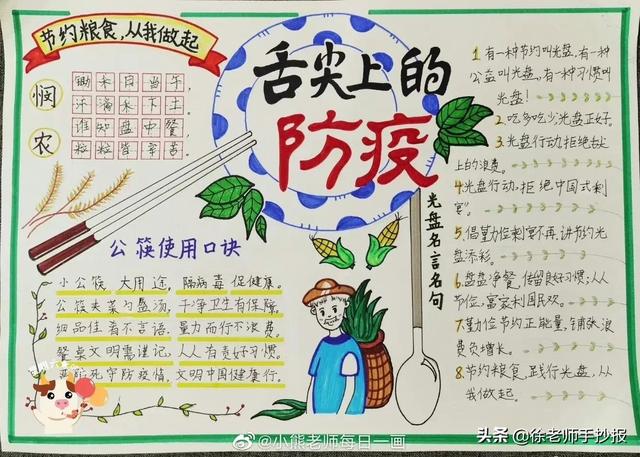 节约粮食,从我做起
悯农
锄禾日当午,
汗滴禾下土。
谁知盘中餐,
粒粒皆辛苦。
舌尖上的
防疫
公筷使用口诀
小公筷 大用途, 隔病毒 保健康。
公筷夹菜勺盛汤, 干净卫生有保障。
细品佳肴不言语, 量力而行不浪费。
餐桌文明需谨记, 人人有责好习惯。
防死守防疫情, 文明中国健康行。
光盘名言名句
1.有一种节约叫光盘,有一种
公益叫光盘,有一种习惯叫
光盘!
2.吃多吃少,光盘正好。
3.光盘行动,拒绝舌尖
上的浪费。
4.光盘行动,拒绝中国式剩
宴。
5.倡量力位剩宴不再,讲节约光
盘添彩。
6.盘盘净餐,传留良好习惯;人人
节俭,富家利国民欢。
7.勤俭节约正能量,铺张浪
费负增长。
8.节约粮食,践行光盘,从
我做起。
@小熊老师每日一画
头条@徐老师手抄报